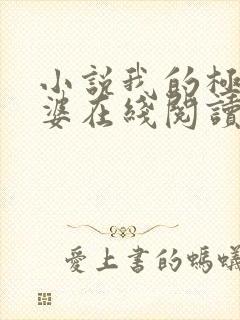 小説我的極
婆在綫閱讀
愛上書的螞蟻